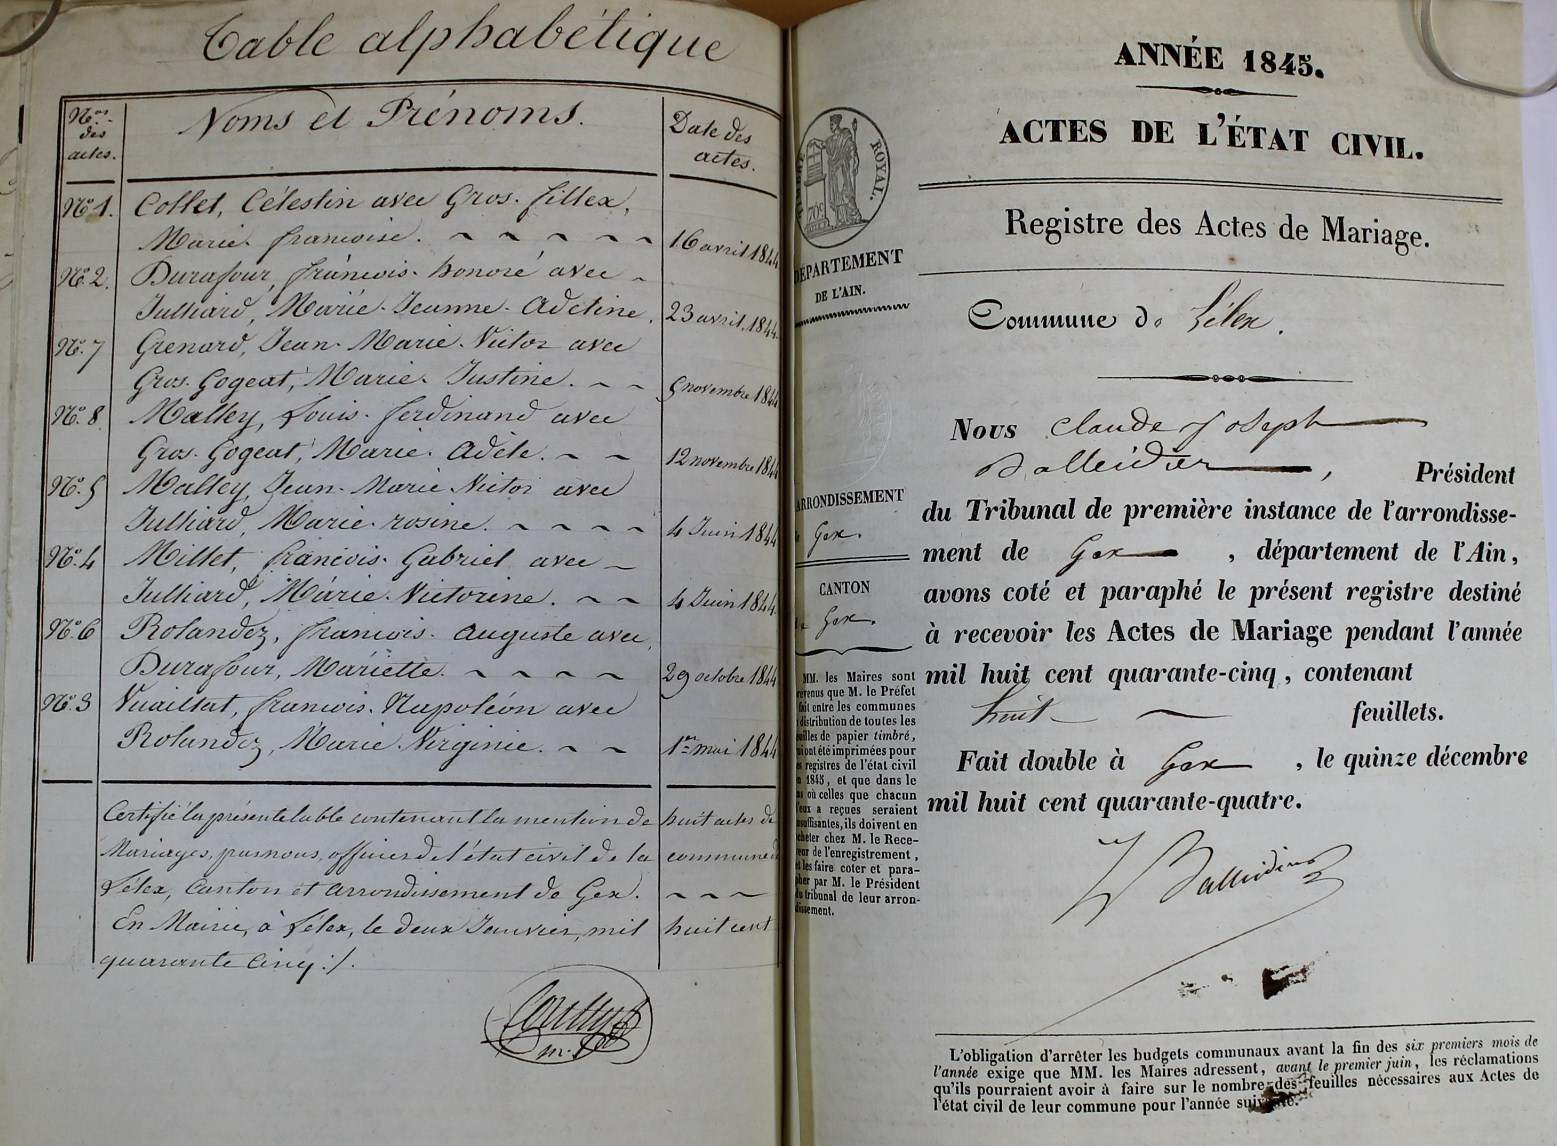 Table alphabétique
Nos des actes.
Noms et Prénoms.
Date des actes.
No 1. Collet, Célestin avec Gros. fillex,
Marie. francoise. 16 avril 1844
No 2. Durafour, francois. honoré avec
Julliard, Marie. Jeanne. Adeline. 23 avril. 1844.
No. 7 Grenard, Jean. Marie. Victor avec
Gros. Gogeat, Marie. Justine. 5 novembre 1844
No. 8. Malley, Louis. ferdinand avec
Gros. Gogeat, Marie. Adèle. 12 novembre 1844
No. 5 Malley, Jean. Marie Victor avec
Julliard, Marie. rosine. 4 Juin 1844
No. 4 Millet, francois. Gabriel avec
Julliard, Marie. Victorine. 4 Juin 1844
No. 6 Rolandez, francois. auguste avec,
Durafour, Mariette. 29 octobre 1844
No. 3 Vuaillat, francois. Napoléon avec
Rolandez, Marie. Virginie. 1er mai 1844
Certifié la présente table contenant la mention de huit actes de
Mariages, par nous, officier de l'état civil de la commune de
Lélex, Canton et arrondissement de Gex.
En Mairie, à Lélex, le deux Janvier, mil huit cent
quarante cinq :/.
ANNÉE 1845.
ACTES DE L'ÉTAT CIVIL.
TIMBRE ROYAL.
70c
Registre des Actes de Mariage.
DÉPARTEMENT
DE L'AIN.
Commune de Lélex.
Nous Claude Joseph
Balleidier, Président
du Tribunal de première instance de l'arrondisse-
ment de Gex, département de l'Ain,
avons coté et paraphé le présent registre destiné
à recevoir les Actes de Mariage pendant l'année
mil huit cent quarante-cinq, contenant
huit feuillets.
Fait double à Gex, le quinze décembre
mil huit cent quarante-quatre.
Balleidier
ARRONDISSEMENT
Gex.
CANTON
Gex.
MM. les Maires sont
prévenus que M. le Préfet
fait entre les communes
distribution de toutes les
feuilles de papier timbré,
qui ont été imprimées pour
les registres de l'état civil
1845, et que dans le
cas où celles que chacun
d'eux a reçues seraient
insuffisantes, ils doivent en
acheter chez M. le Rece-
veur de l'enregistrement,
et les faire coter et para-
pher par M. le Président
du tribunal de leur arron-
dissement.
L'obligation d'arrêter les budgets communaux avant la fin des six premiers mois de
l'année exige que MM. les Maires adressent, avant le premier juin, les réclamations
qu'ils pourraient avoir à faire sur le nombre des feuilles nécessaires aux Actes de
l'état civil de leur commune pour l'année suivante.